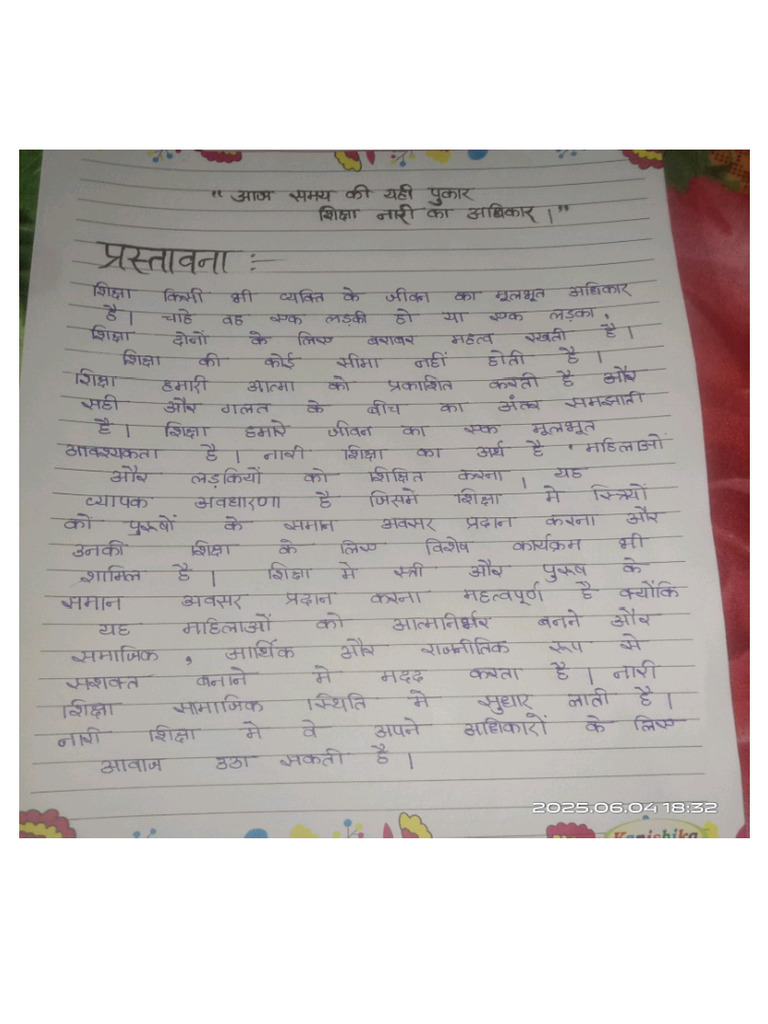 "आज समय की यही पुकार
शिक्षा नारी का अधिकार।"
प्रस्तावना :-
शिक्षा किसी भी व्यक्ति के जीवन का मूलभूत अधिकार
है। चाहे वह एक लड़की हो या एक लड़का,
शिक्षा दोनों के लिए बराबर महत्व रखती है।
शिक्षा की कोई सीमा नहीं होती है।
शिक्षा हमारी आत्मा को प्रकाशित करती है और
सही और गलत के बीच का अंतर समझाती
है। शिक्षा हमारे जीवन का एक मूलभूत
आवश्यकता है। नारी शिक्षा का अर्थ है 'महिलाओं
और लड़कियों को शिक्षित करना, यह
व्यापक अवधारणा है जिसमे शिक्षा मे स्त्रियों
को पुरूषों के समान अवसर प्रदान करना और
उनकी शिक्षा के लिए विशेष कार्यक्रम भी
शामिल है। शिक्षा मे स्त्री और पुरूष के
समान अवसर प्रदान करना महत्वपूर्ण है क्योंकि
यह महिलाओं को आत्मनिर्भर बनने और
समाजिक, आर्थिक और राजनीतिक रूप से
सशक्त बनाने मे मदद करता है। नारी
शिक्षा सामाजिक स्थिति मे सुधार लाती है।
नारी शिक्षा मे वे अपने अधिकारों के लिए
आवाज उठा सकती है।
2025.06.04 18:32
Kanishika